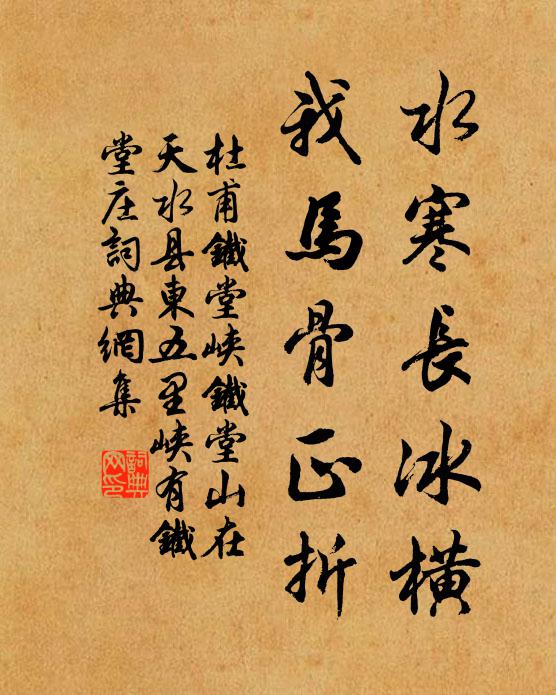 水寒長冰橫
我馬骨正折
杜甫鐵堂峽鐵堂山在
天水县東五里峽有鐵
堂庄詞典網集
詞典
网印